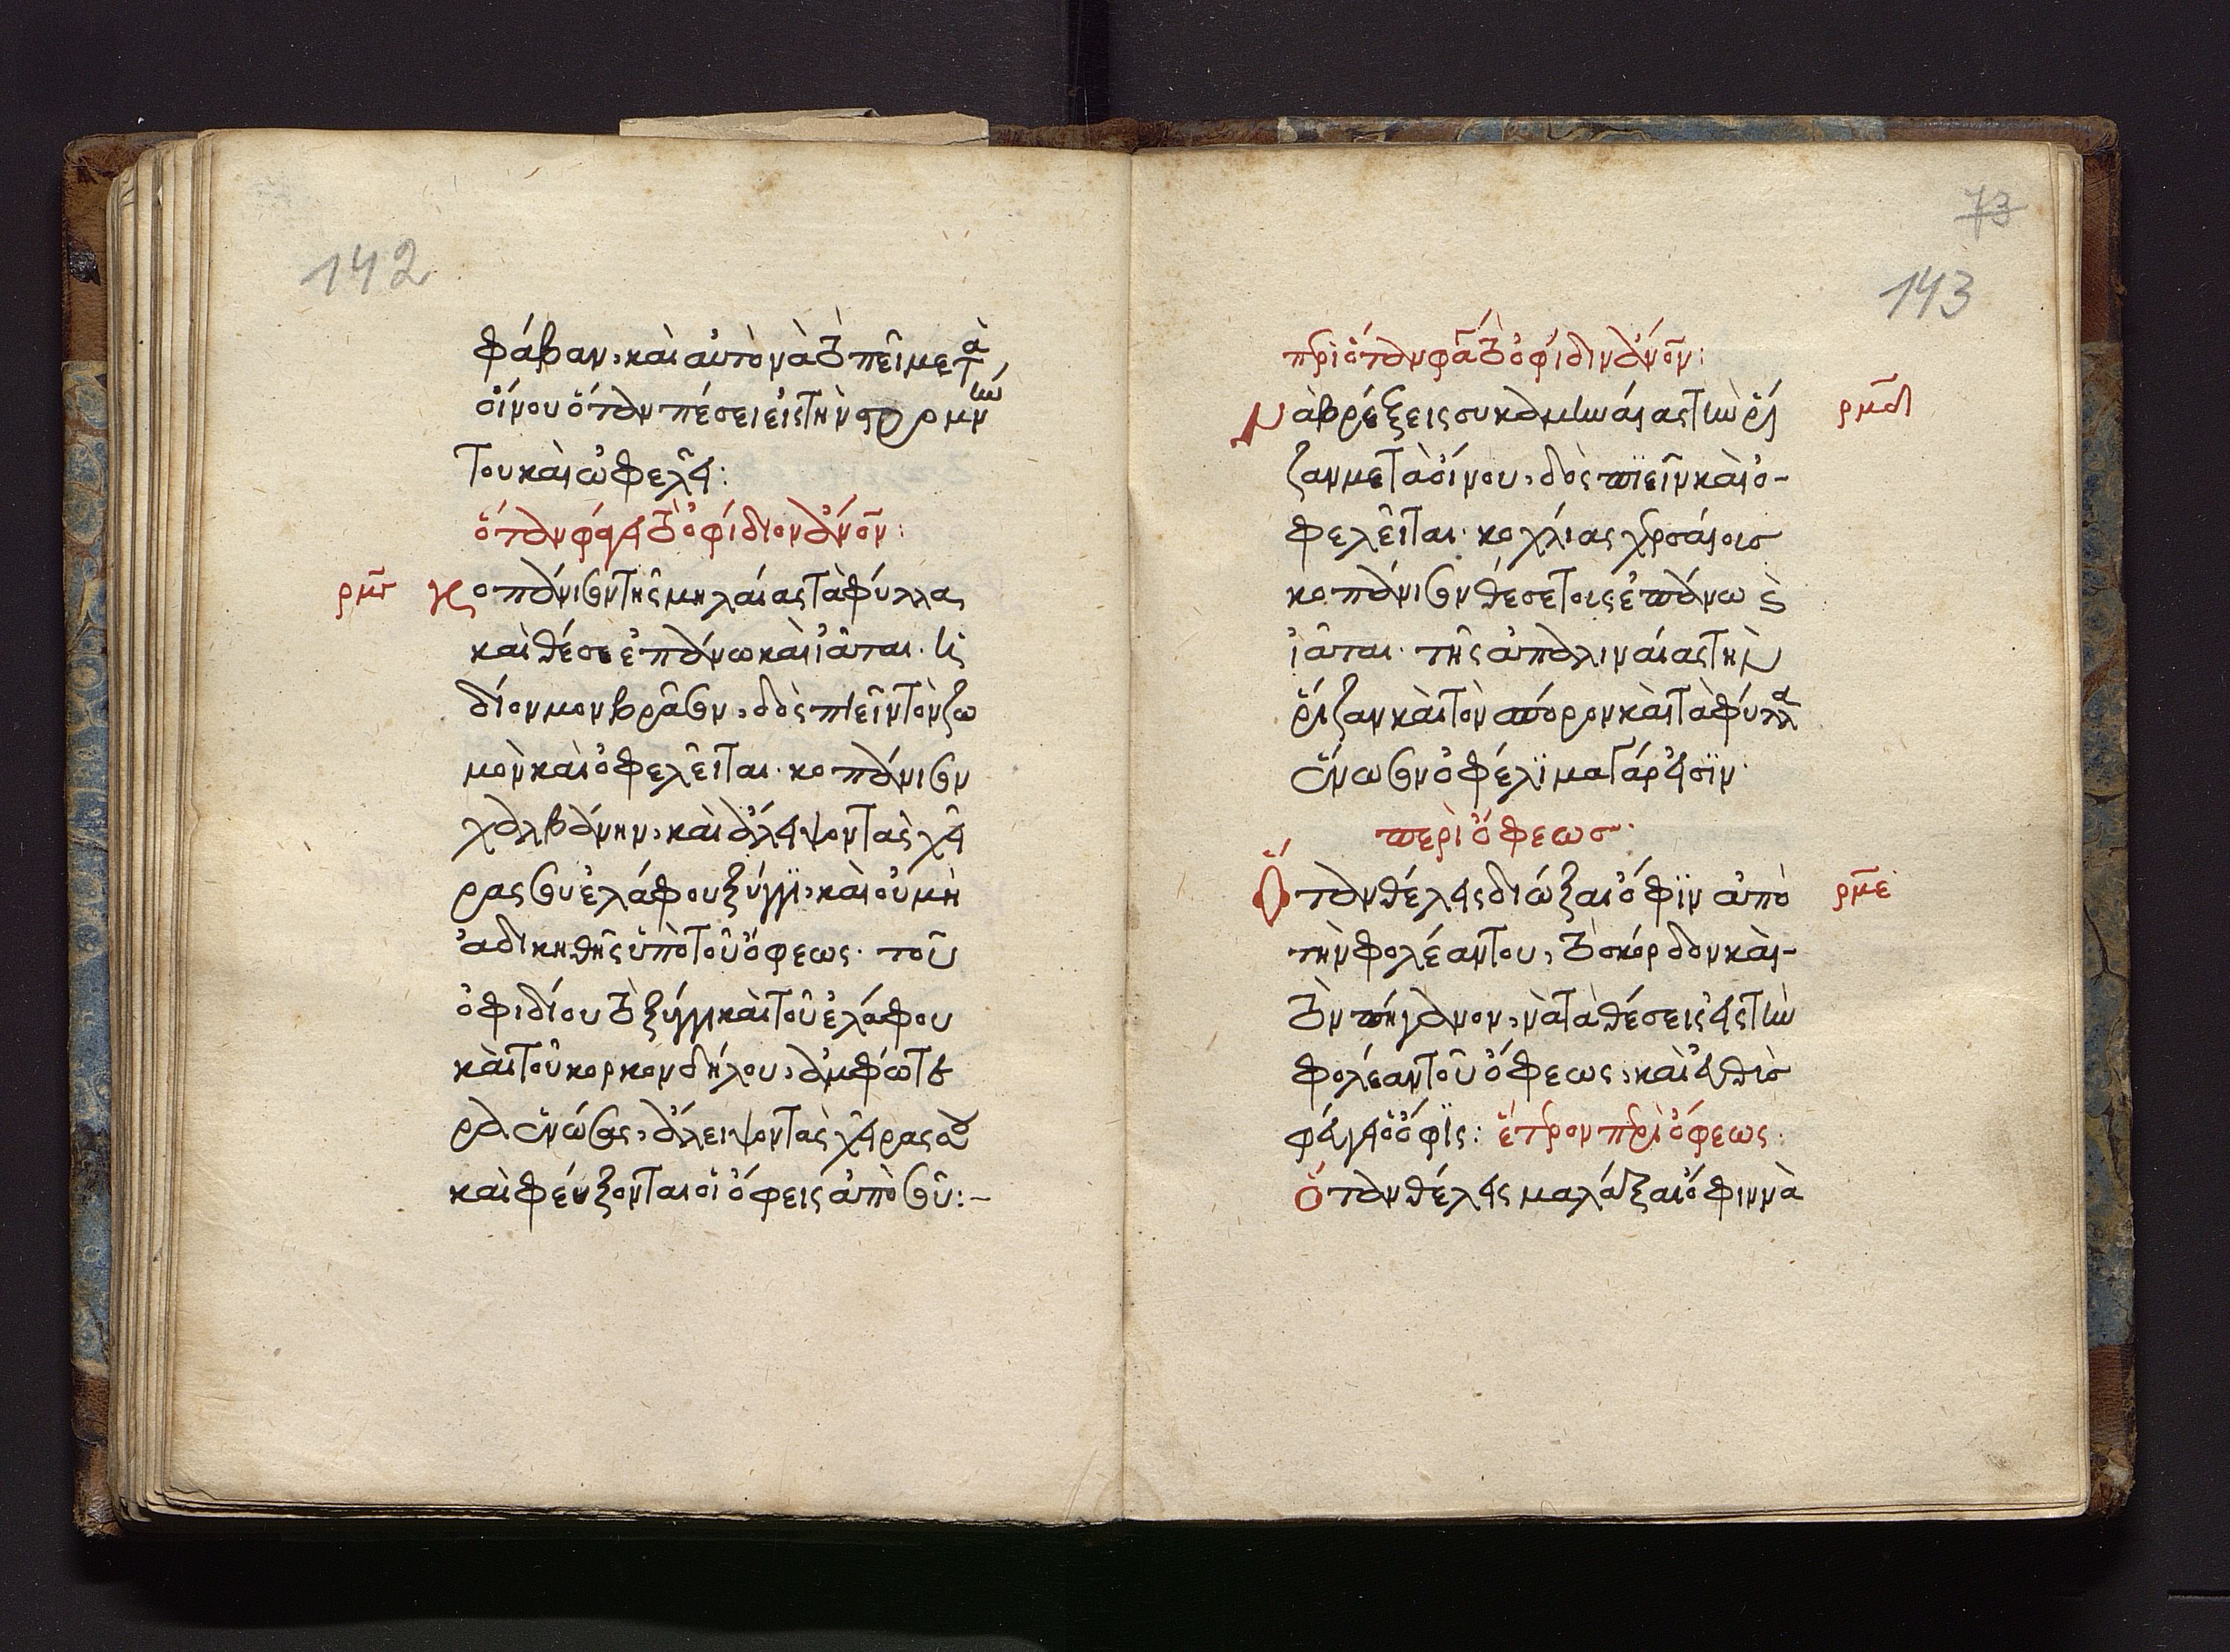 142
φάβαν, καὶ αὐτὸ νὰ τὸ πεῖ μετὰ
οἴνου ὅταν πέσει εἰς τὴν στρωμνὴν
του καὶ ὠφελεῖ:
ὅταν φάγει τὸ ὀφίδιον ἄνον:
ρμγ κοπάνισον τῆς μηλαίας τὰ φύλλα,
καὶ θέσε ἐπάνω καὶ ἰᾶται.
δίον μον βράσον, δὸς πιεῖν τὸν ζω
μὸν καὶ ὀφελεῖται. κοπάνισον
χαλβάνην, καὶ ἄλειψον τὰς χεῖ
ρας σου ἐλάφου ξύγγϊ, καὶ οὐ μὴ
ἀδικηθῆς ὑπὸ τοῦ ὄφεως. τοῦ
ὀφιδίου τὸ ξύγγι καὶ τοῦ ἐλάφου
καὶ τοῦ κορκονδήλου, ἀμφώτε
ρα ἐνώσας, ἄλειψον τὰς χεῖρας σου
καὶ φεύξονται οἱ ὄφεις ἀπὸ σοῦ:-
73
143
περὶ ὅταν φᾶ τὸ ὀφίδιν ἄνον:
Νὰ βρέξεις συκαμιναίας τὴν ῥί ρμδ
ζαν μετὰ οἴνου, δὸς πϊεῖν καὶ ὀ-
φελεῖται. κοχλίας χερσαίοις
κοπάνισον θέσε τοις ἐπάνω καὶ
ἰᾶται. τῆς ἀπαλιναίας τὴν
ῥίζαν καὶ τὸν σπόρον καὶ τὰ φύλλα
ἕνωσον ὀφέλϊμα γάρ εἰσϊν.
περὶ ὄφεως.
Ὅταν θέλεις διώξαι ὄφϊν ἀπὸ ρμε
τὴν φολέαν του, τὸ σκόρδον καὶ-
τὸν πήγανον, νὰ τὰ θέσεις εἰς τὴν
φολέαν τοῦ ὄφεως, καὶ εὐθὺς
φεύγει ὁ ὄφϊς: ἕτερον περὶ ὄφεως.
Ὅταν θέλεις μαλάξαι ὄφιν νὰ